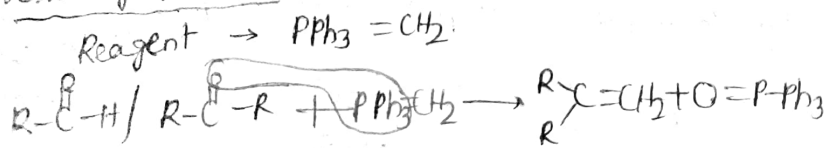 Reagent → PPh3 = CH2.
R-C(=O)-H / R-C(=O)-R + PPh3=CH2 ⟶ R R C=CH2 + O=P-Ph3